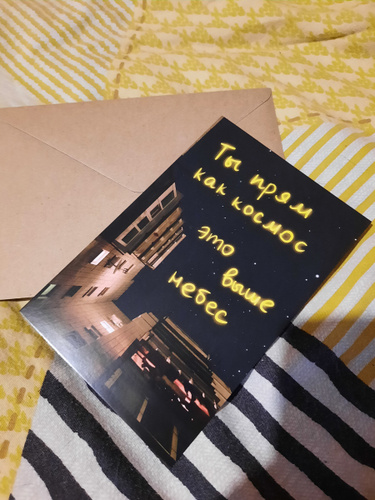 Ты прям
как космос
это
выше
небес